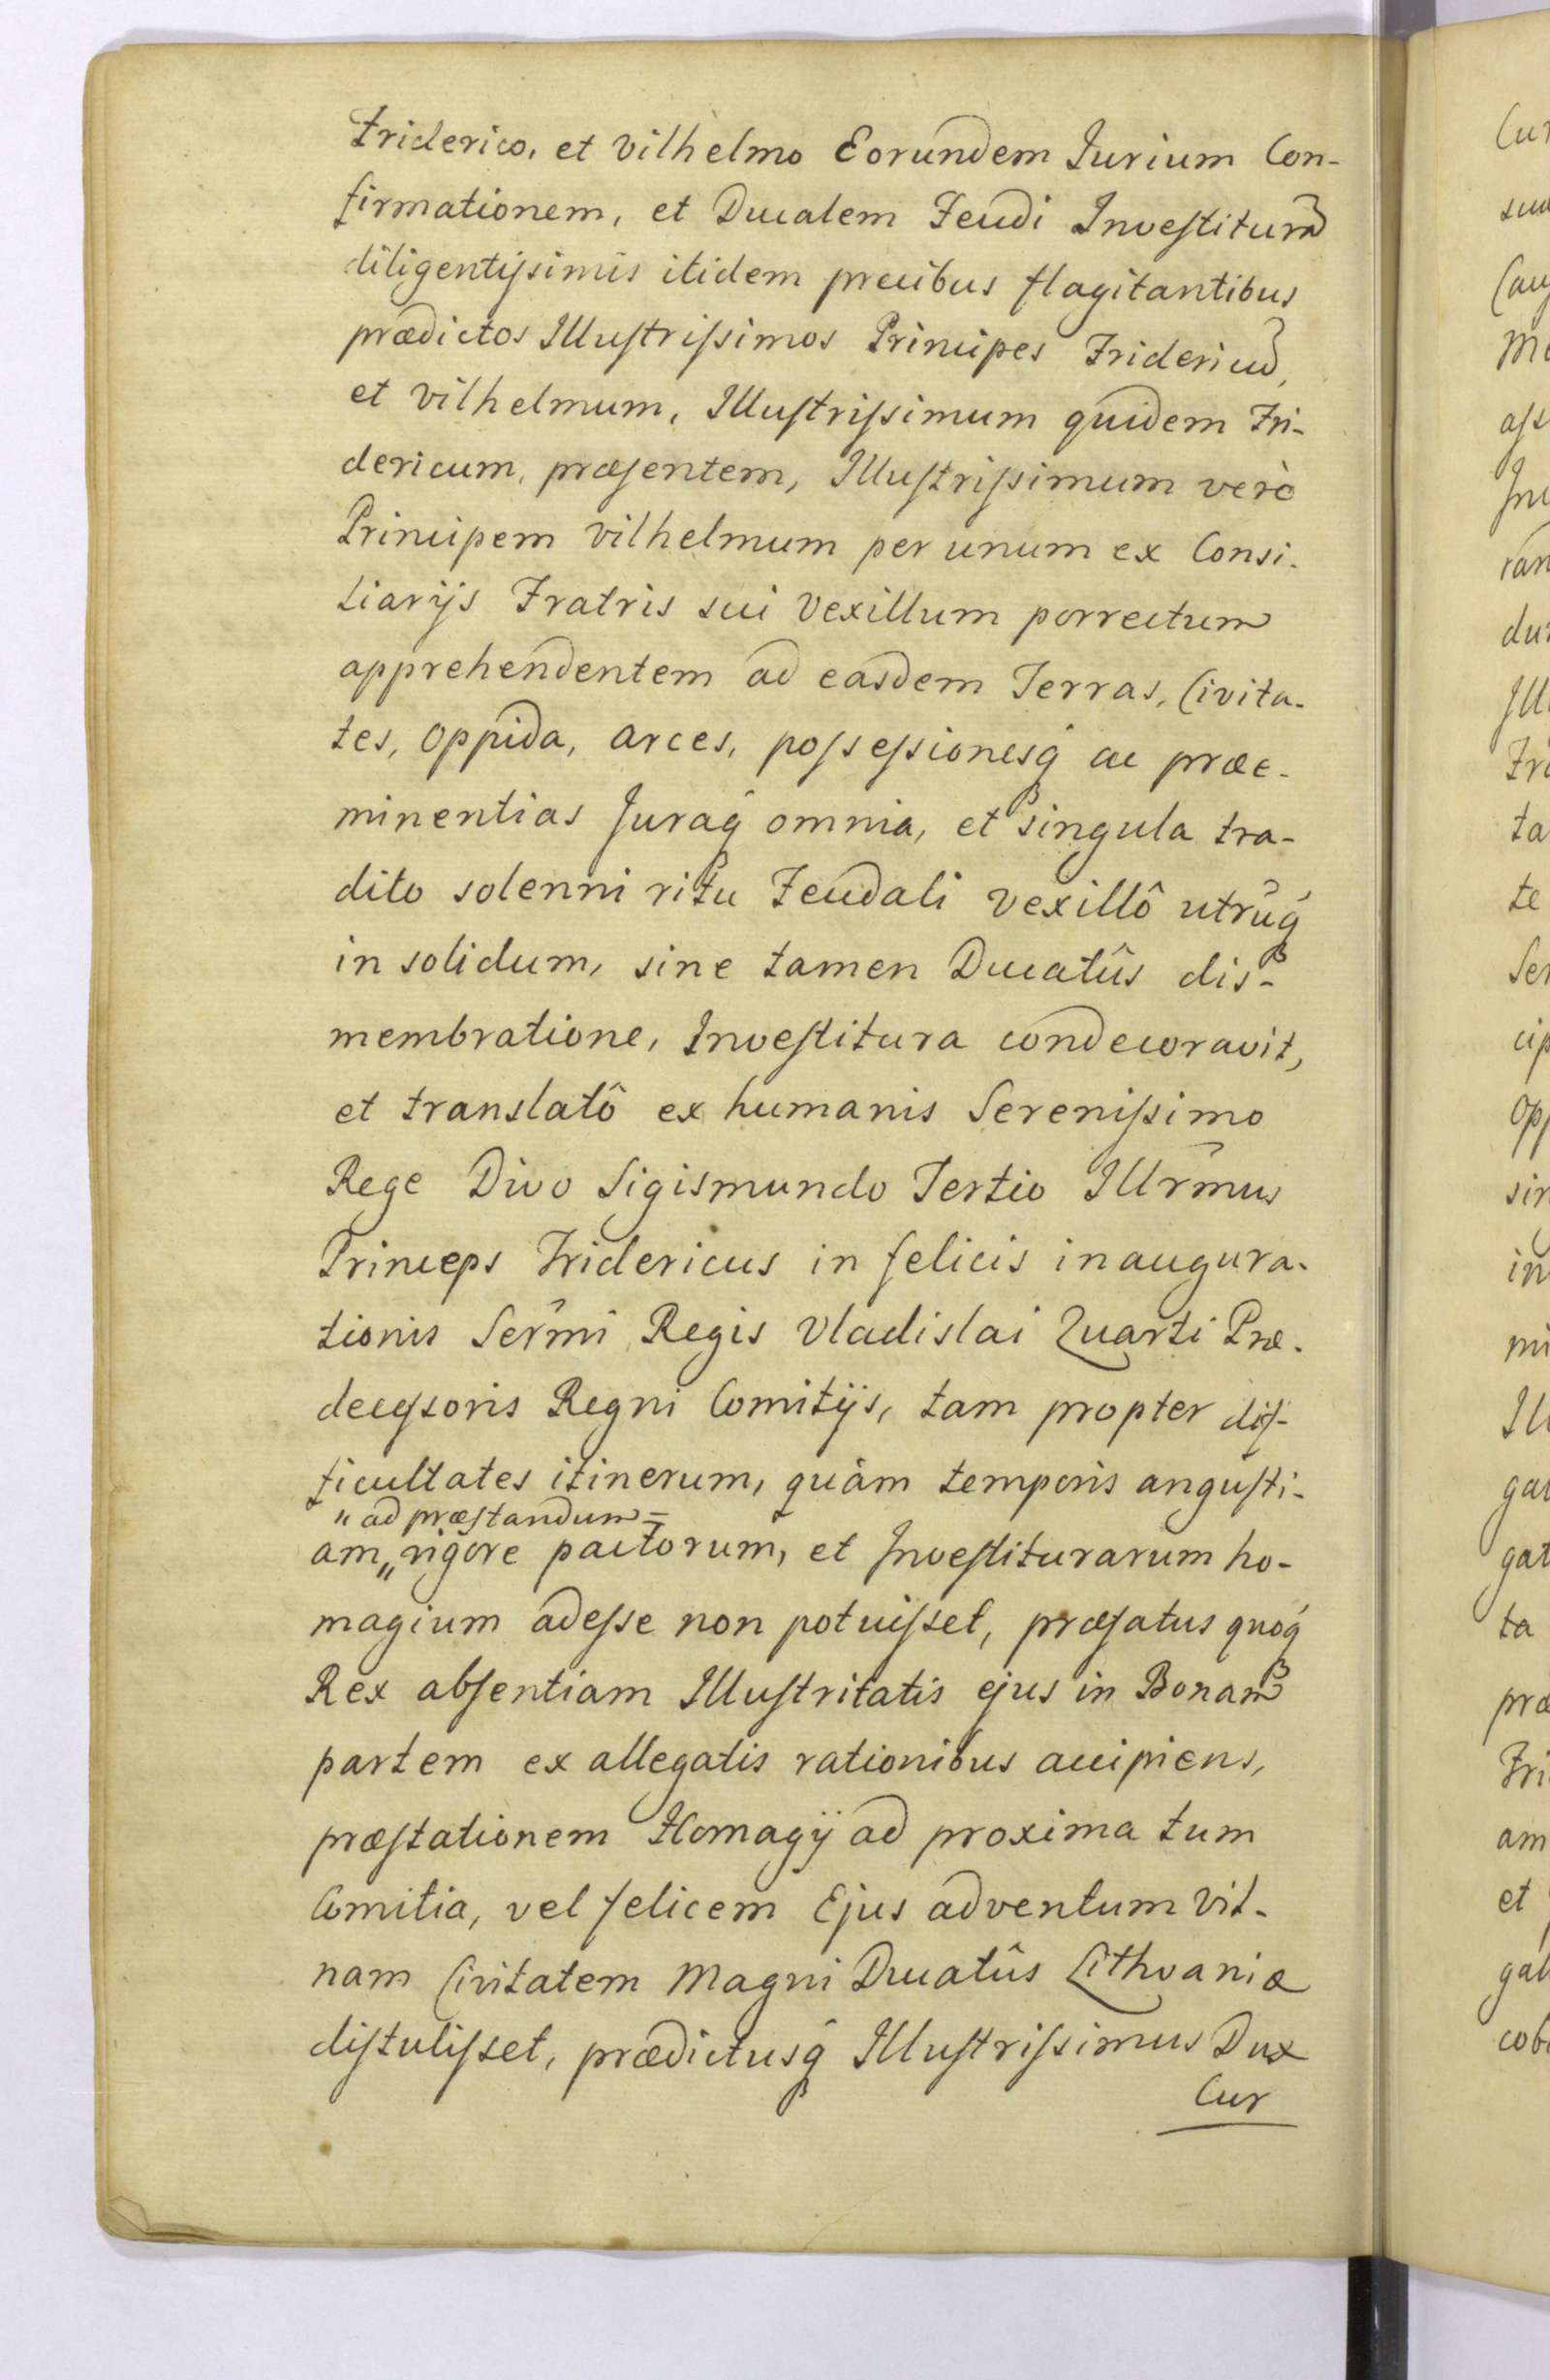 Friderico, et Vilhelmo Eorundem Jurium Con-
firmationem, et Ducalem Feudi Investiturã
diligentissimis itidem precibus flagitantibus
prædictos Illustrissimos Principes Fridericũ,
et Vilhelmum, Illustrissimum quidem Fri-
dericum, præsentem, Illustrissimum verò
Principem Vilhelmum per unum ex Consi-
liarijs Fratris sui Vexillum porrectum
apprehendentem ad easdem Terras, Civita-
tes, Oppida, Arces, possessionesq́ ac præe-
minentias Juraq́ omnia, et singula tra-
dito solenni ritu Feudali Vexillô utrũq́
in solidum, sine tamen Ducatûs dis-
membratione, Investitura condecoravit,
et translatô ex humanis Serenissimo
Rege Divo Sigismundo Tertio Illrm̃us
Princeps Fridericus in felicis inaugura-
tionis Serm̃i Regis Vladislai Quarti Præ-
decessoris Regni Comitijs, tam propter dif-
ficultates itinerum, quàm temporis angusti-
" ad præstandum =
am „ rigore pactorum, et Investiturarum ho-
magium adesse non potuisset, præfatus quoq́
Rex absentiam Illustritatis ejus in Bonam
partem ex allegatis rationibus accipiens,
præstationem Homagij ad proxima tum
Comitia, vel felicem Ejus adventum Vil-
nam Civitatem Magni Ducatûs Lithvaniæ
distulisset, prædictusq́ Illustrissimus Dux
Cur